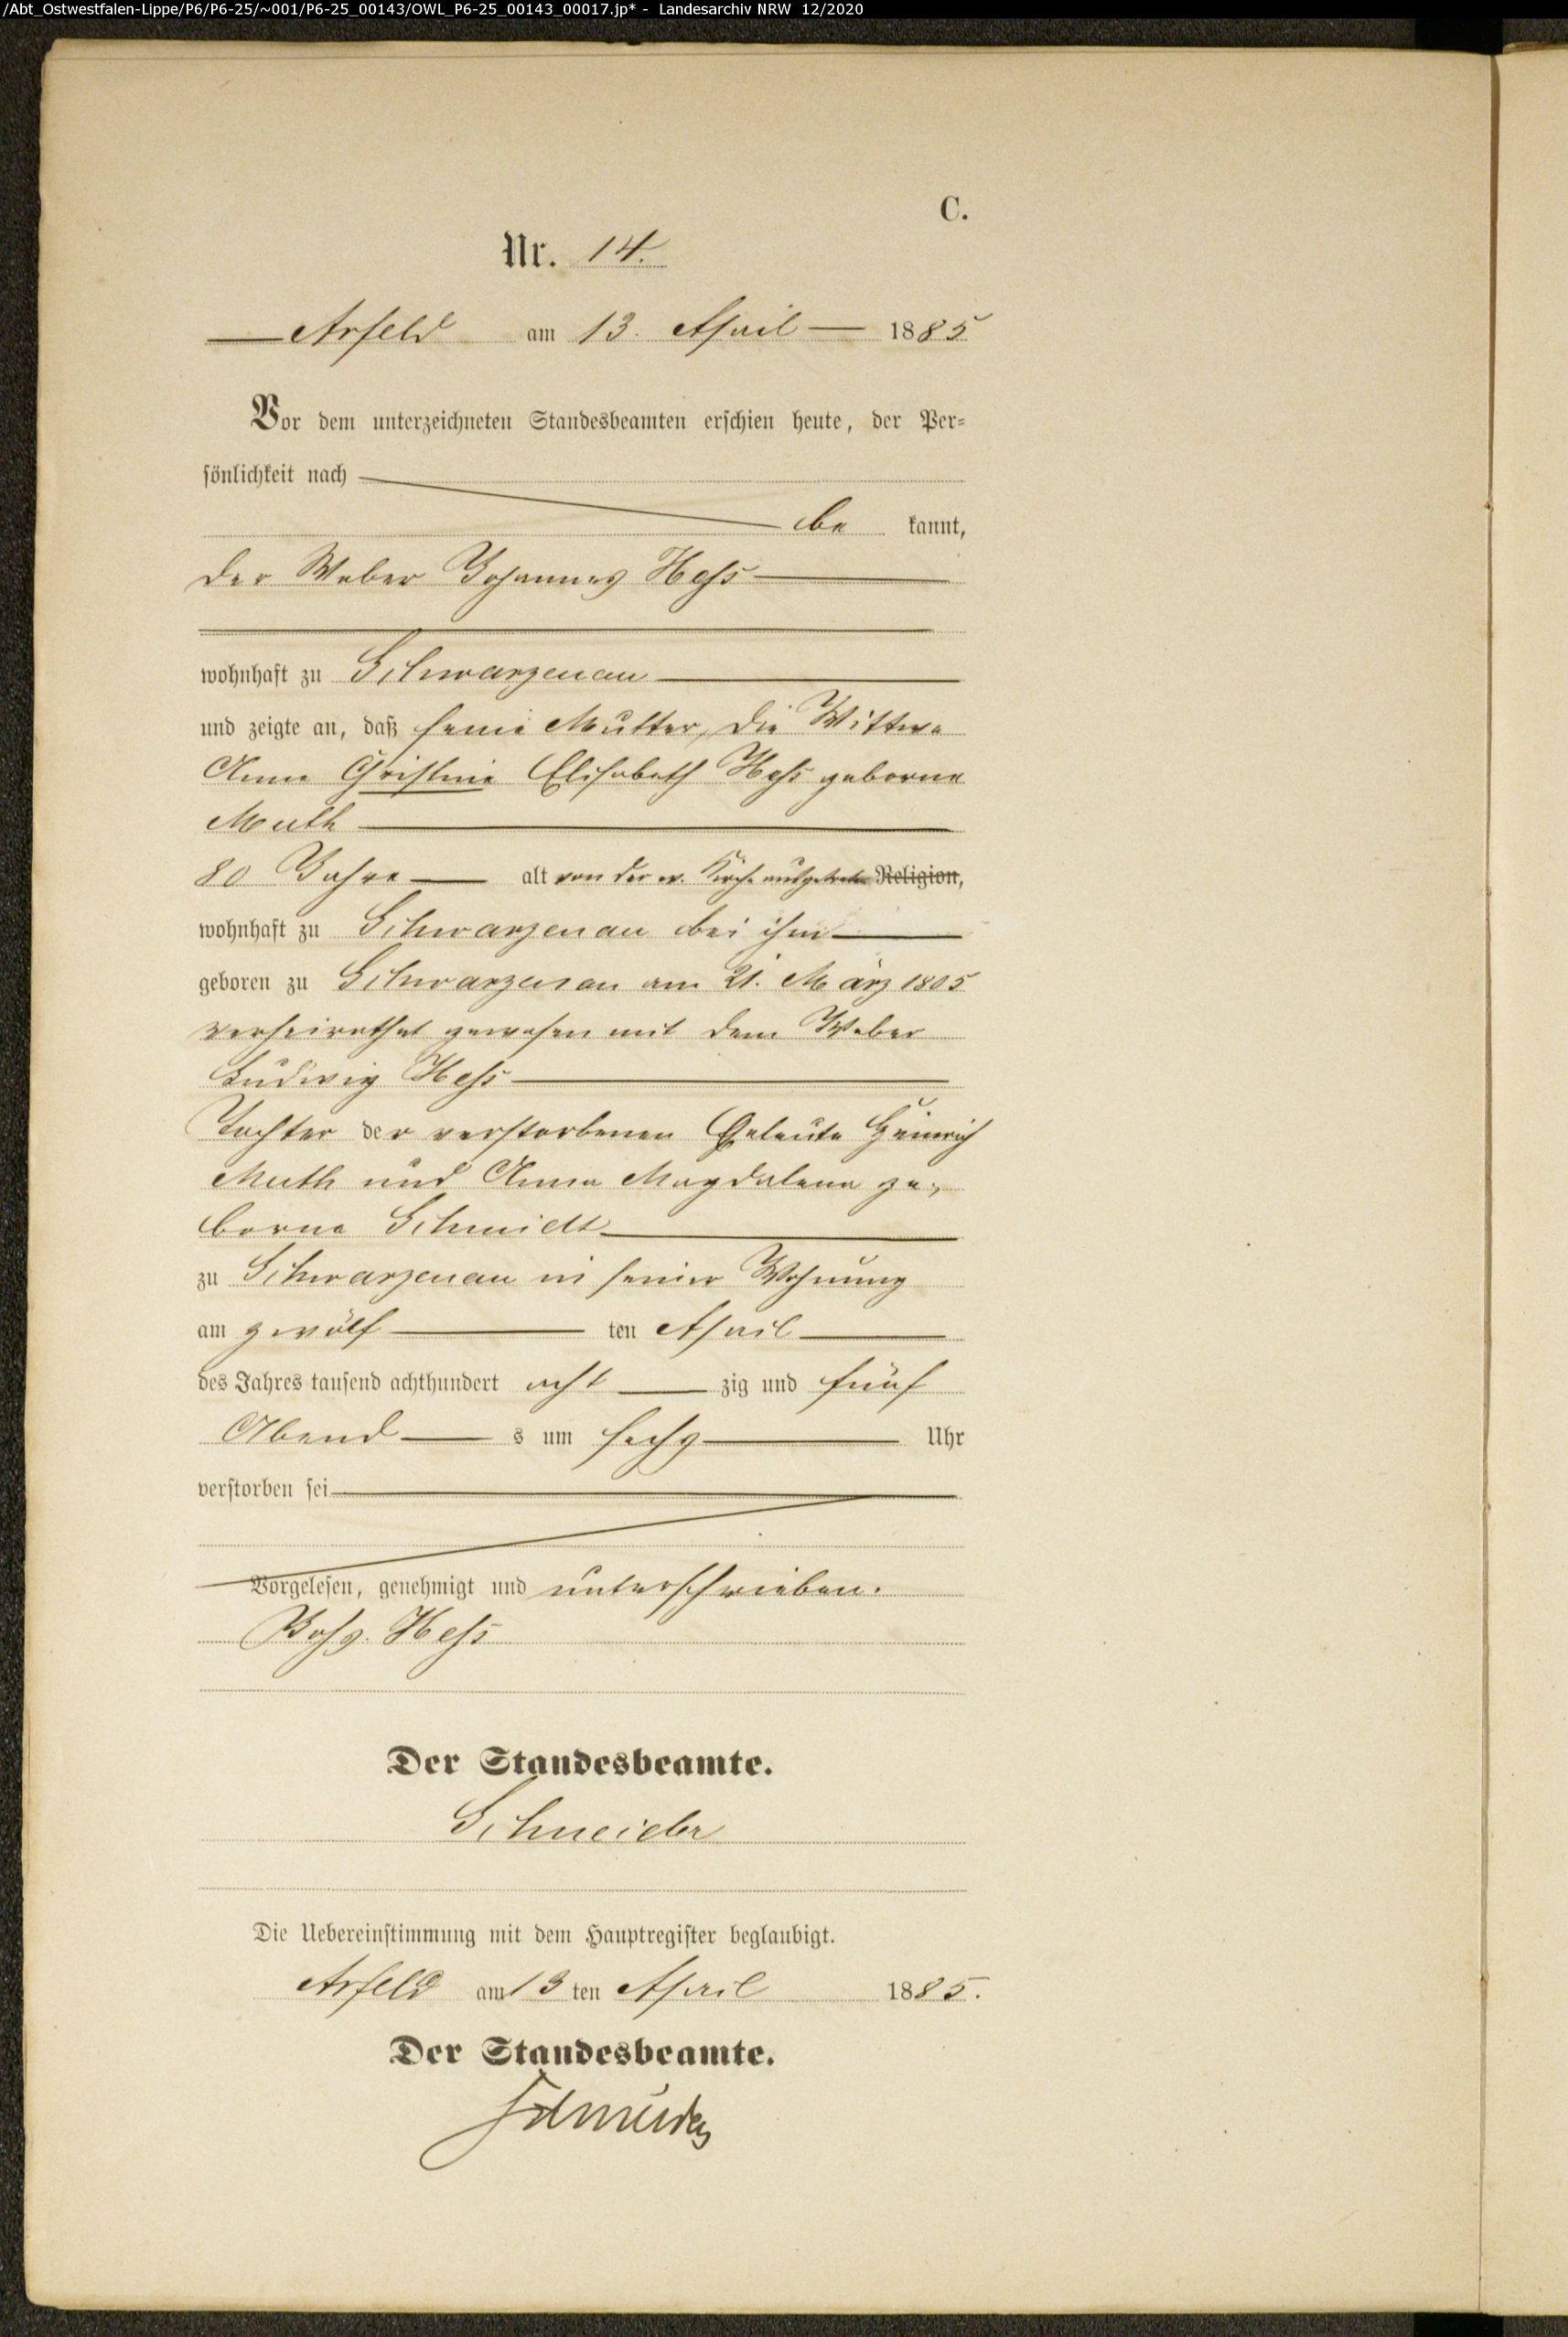 /Abt_Ostwestfalen-Lippe/P6/P6-25/~001/P6-25_00143/OWL_P6-25_00143_00017.jp* - Landesarchiv NRW 12/2020
C.
Nr. 14.
Arfeld am 13. April 1885
Vor dem unterzeichneten Standesbeamten erschien heute, der Per-
sönlichkeit nach
be kannt,
der Weber Johannes Heß
wohnhaft zu Schwarzenau
und zeigte an, daß seine Mutter, die Wittwe
Anna Christine Elisabeth Heß geborne
Muth
80 Jahre alt von der ev. Kirche ausgetreten Religion,
wohnhaft zu Schwarzenau bei ihm
geboren zu Schwarzenau am 21. März 1805
verheirathet gewesen mit dem Weber
Ludwig Heß
Tochter der verstorbenen Eheleute Heinrich
Muth und Anna Magdalena ge-
borne Schmidt
zu Schwarzenau in seiner Wohnung
am zwölf ten April
des Jahres tausend achthundert acht zig und fünf
Abend s um sechs Uhr
verstorben sei
Vorgelesen, genehmigt und unterschrieben.
Johs. Heß
Der Standesbeamte.
Schneider
Die Uebereinstimmung mit dem Hauptregister beglaubigt.
Arfeld am 13 ten April 1885.
Der Standesbeamte.
Schneider